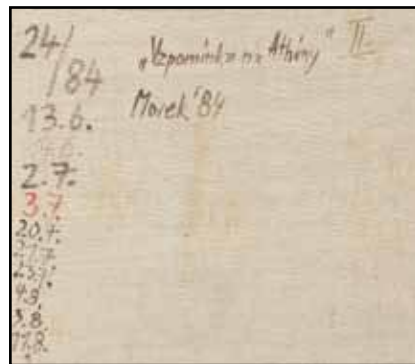 24/
/84
„Vzpomínka na Athény" II.
Marek '84
13.6.
2.7.
3.7.
20.7.
23.7.
4.8.
5.8.
11.8.